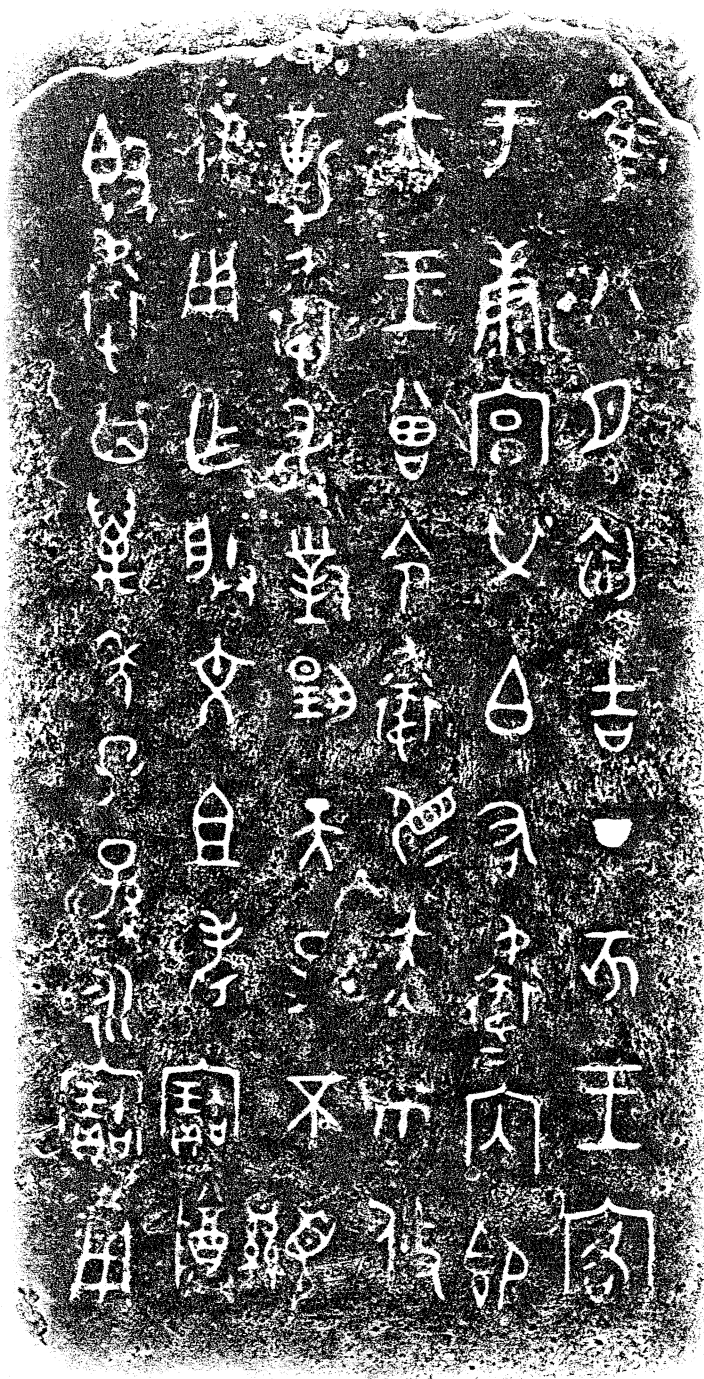 隹八月初吉丁亥王客
于康宮榮白右衛内即
立王曾令衛赤巿攸
勒敢對揚天子不顯
休用乍朕文且考寶尊
𣪘衛其萬年子孫永寶用